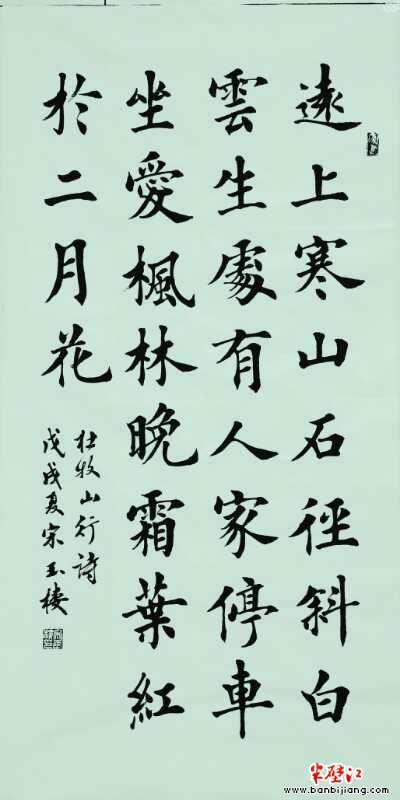 遠上寒山石徑斜白
雲生處有人家停車
坐愛楓林晚霜葉紅
於二月花
杜牧山行詩
戊戌夏宋玉楼
半壁江
www.banbijiang.com